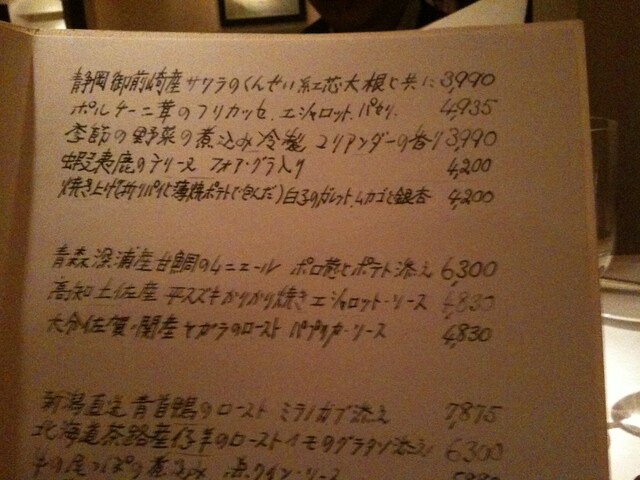 静岡御前崎産サワラのくんせい紅芯大根と共に 3,990
ポルチーニ茸のフリカッセ、エシャロット、パセリ 4,935
季節の野菜の煮込み冷製 コリアンダーの香り 3,990
蝦夷鹿のテリーヌ フォアグラ入り 4,200
焼き上げて折りパイと薄焼ポテトで包んだ)白子のガレット、ムカゴと銀杏 4,200
青森深浦産甘鯛のムニエール ポロ葱とポテト添え 6,300
高知土佐産 平スズキかりかり焼きエシャロット・ソース 4,830
大分佐賀ノ関産ヤガラのロースト パプリカ・ソース 4,830
新潟直送青首鴨のロースト ミラノカブ添え 7,875
北海道茶路産仔羊のロースト イモのグラタン添え 6300
羊の尾っぽの煮込み 赤ワイン・ソース